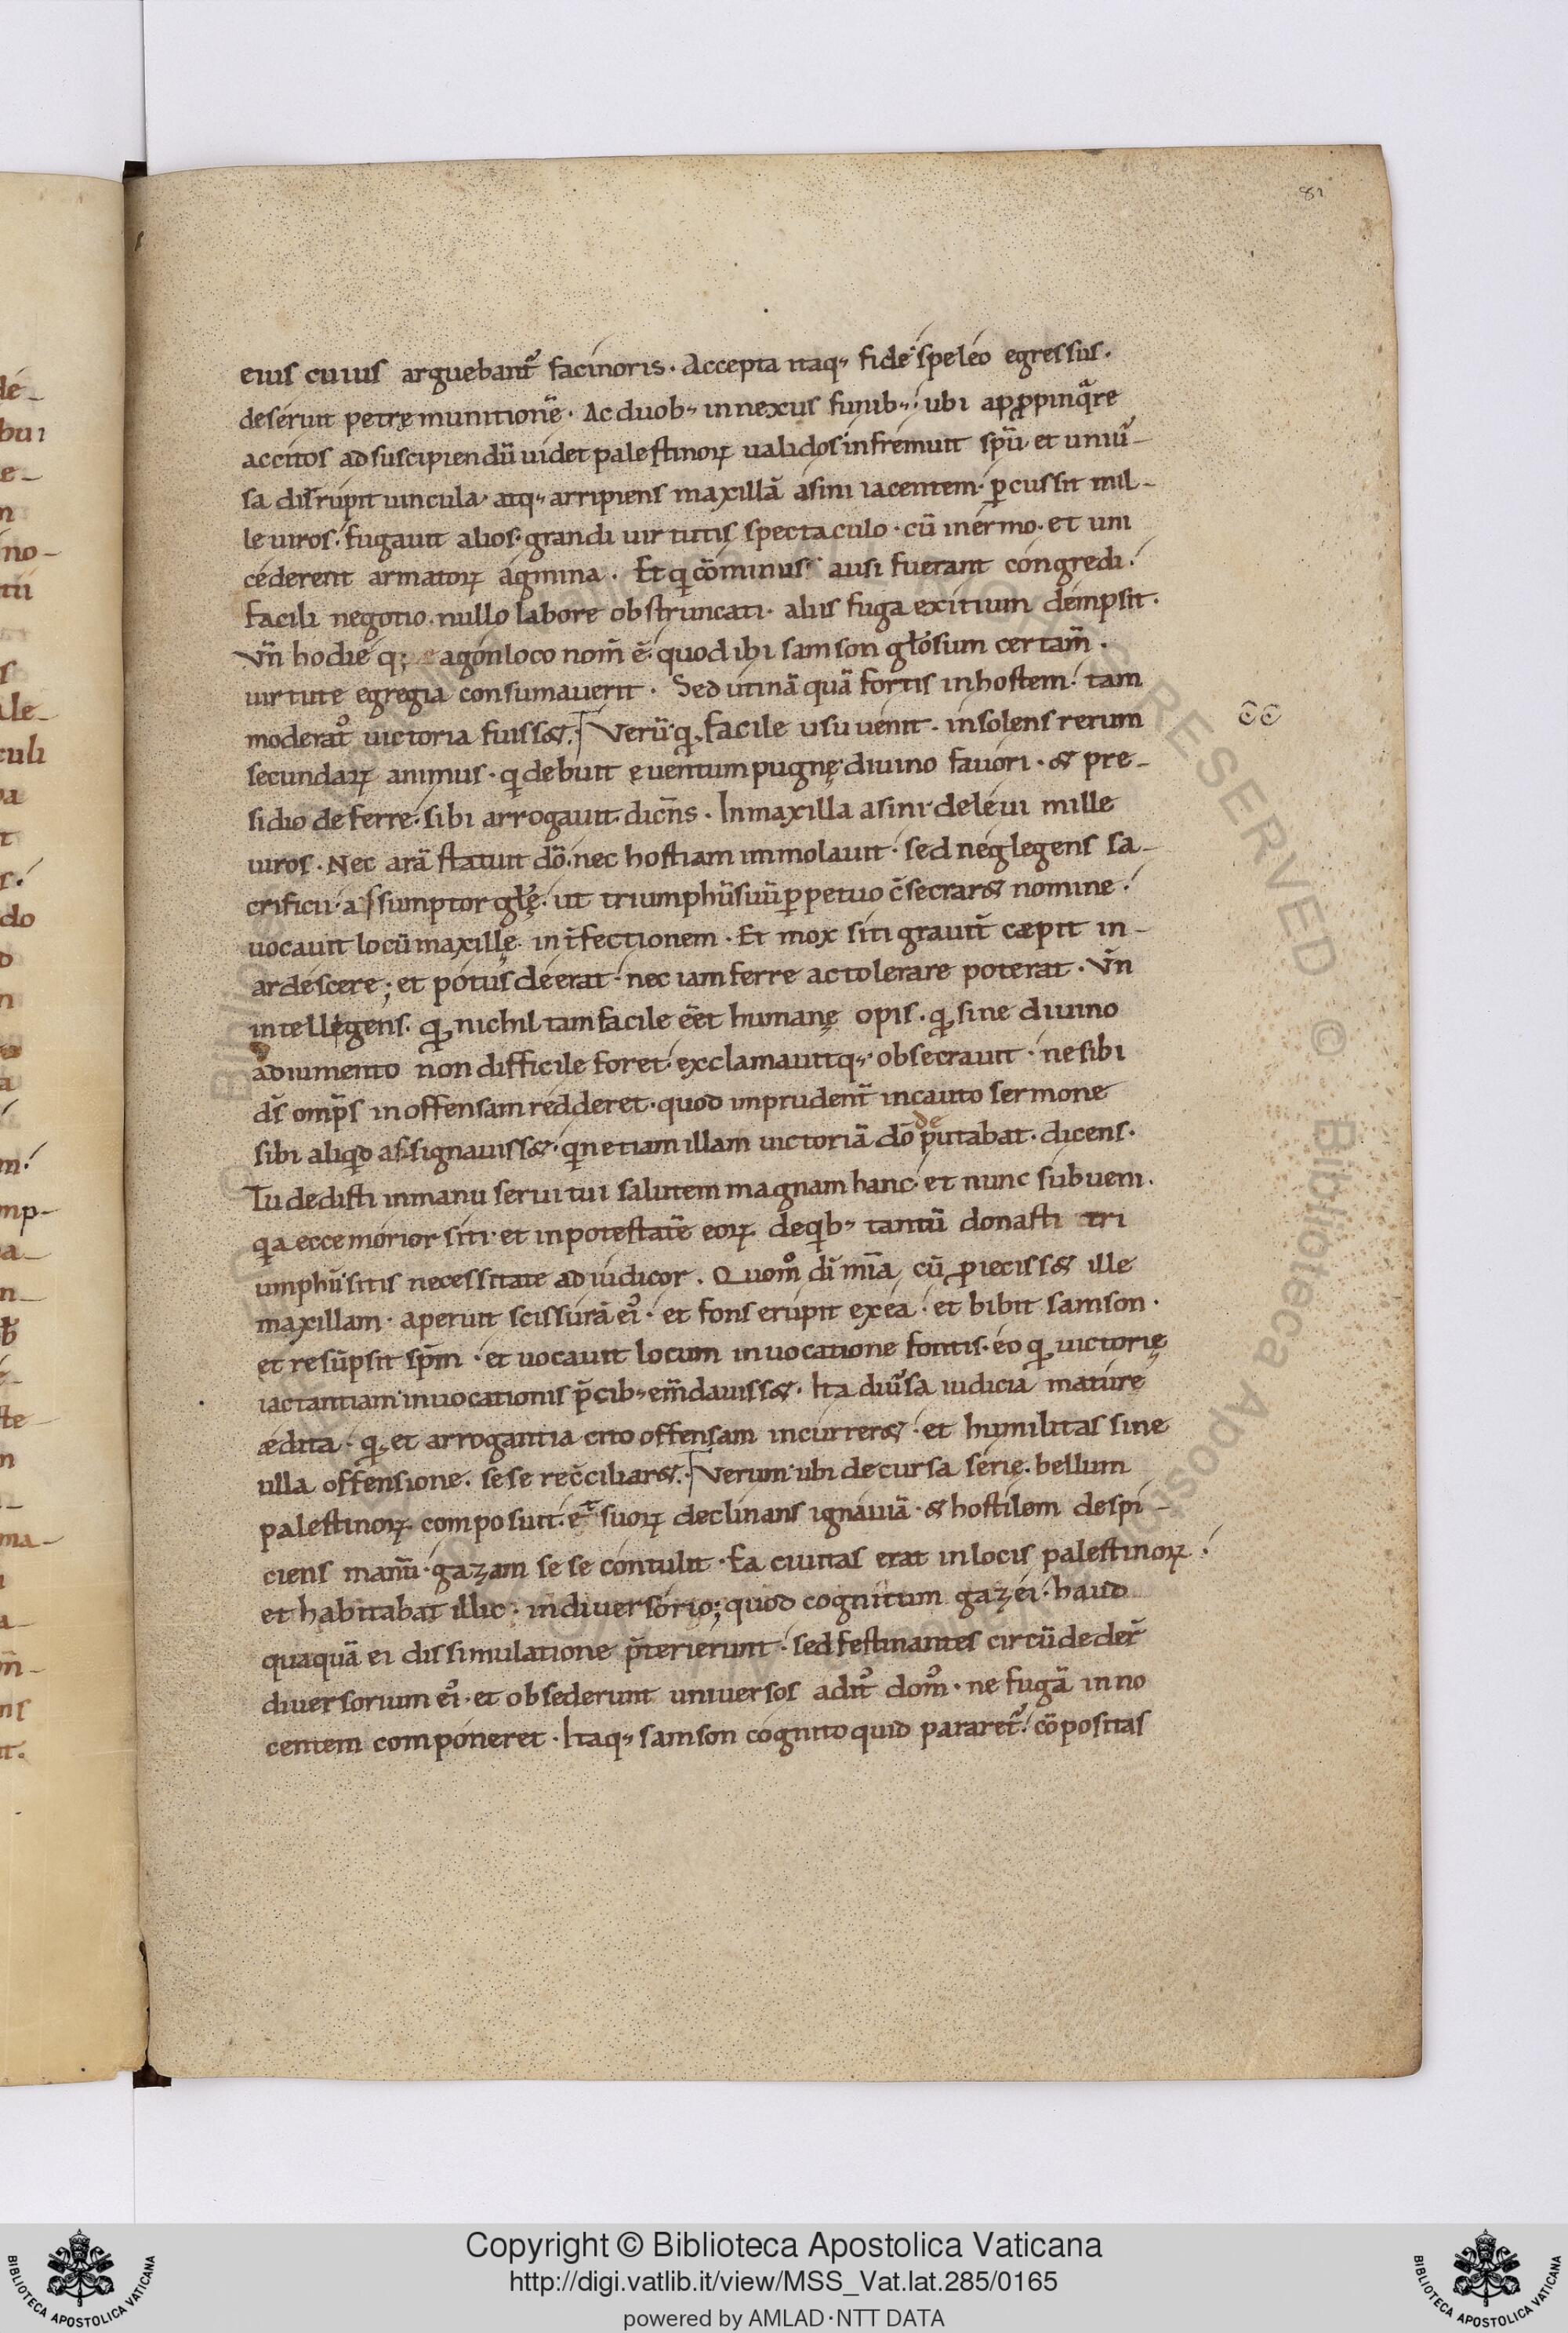 81
eius cuius arguebant᷒ facinoris. Accepta itaq; fide speleo egressus.
deserut petrę munitionē. Ac duob; innexus funib;. ubi appropinq̄re
accitos ad suscipiendū uidet palestinoꝝ ualidos infremuit spū. et uniū-
sa disrupit uincula. atq; arripiens maxillā asini iacentem. ꝑcussit mil-
le uiros. fugauit alios. grandi uirtutis spectaculo. cū inermo. et uni
cederent armatoꝝ agmina. Et qͥ cōminus ausi fuerant congredi.
facili negotio. nullo labore obstruncati. aliis fuga exitium dempsit.
Vn̄ hodie q; agon loco nom̄ ē. quod ibi samson głosum certam̄.
uirtute egregia consumauerit. Sed utinā quā fortis in hostem. tam
moderat᷒ uictoria fuisset. Verū qͥ facile usu uenit. insolens rerum
secundaꝝ animus. qͥ debuit euentum pugnę diuino fauori. & pre-
sidio deferre. sibi arrogauit. dicn̄s. In maxilla asini deleui mille
uiros. Nec arā statuit dō. nec hostiam immolauit. sed neglegens sa-
crificii. assumptor głę. ut triumphū suū ꝑpetuo c̄secraret nomine.
uocauit locū maxillę. int̄fectionem. Et mox siti grauit̄ cæpit in-
ardescere; et potus deerat. nec iam ferre ac tolerare poterat. Vn̄
intellegens. qͥ nichil tam facile eēt humanę opis. qͥ sine diuino
adiumento non difficile foret. exclamauitq; obsecrauit. ne sibi
ds̄ omp̄s in offensam redderet. quod imprudent̄ incauto sermone
sibi aliqͥd assignauisset. qͥn etiam illam uictoriā dō deputabat. dicens.
Tu dedisti in manu serui tui salutem magnam hanc. et nunc subueni.
qͥa ecce morior siti. et in potestatē eoꝝ de qͥb; tantū donasti tri
umphū. sitis necessitate adiudicor. Quom̊ dī mīa, cū ꝓiecisset ille
maxillam. aperuit scissurā ei᷒. et fons erupit ex ea. et bibit samson.
et resūpsit spm̄. et uocauit locum inuocatione fontis. eo qͥ uictorię
iactantiam inuocationis p̄cib; em̄dauisset. Ita diūsa iudicia mature
ædita. qͥ et arrogantia cito offensam incurreret. et humilitas sine
ulla offensione. sese rec̄ciliaret. Verum ubi decursa serie. bellum
palestinoꝝ composuit. et suoꝝ declinans ignauiā. & hostilem despi-
ciens manū. gazam sese contulit. Ea ciuitas erat in locis palestinoꝝ.
et habitabat illic. in diuersorio; quod cognitum gazei. haud
quaquā ei dissimulatione p̄terierunt. sed festinantes circūdeder̄
diuersorium ei᷒. et obsederunt uniuersos adit᷒ dom᷒. ne fugā in no
centem componeret. Itaq; samson cognito quid pararet᷒. cōpositas
Copyright © Biblioteca Apostolica Vaticana
http://digi.vatlib.it/view/MSS_Vat.lat.285/0165
powered by AMLAD·NTT DATA
BIBLIOTECA APOSTOLICA VATICANA
BIBLIOTECA APOSTOLICA VATICANA